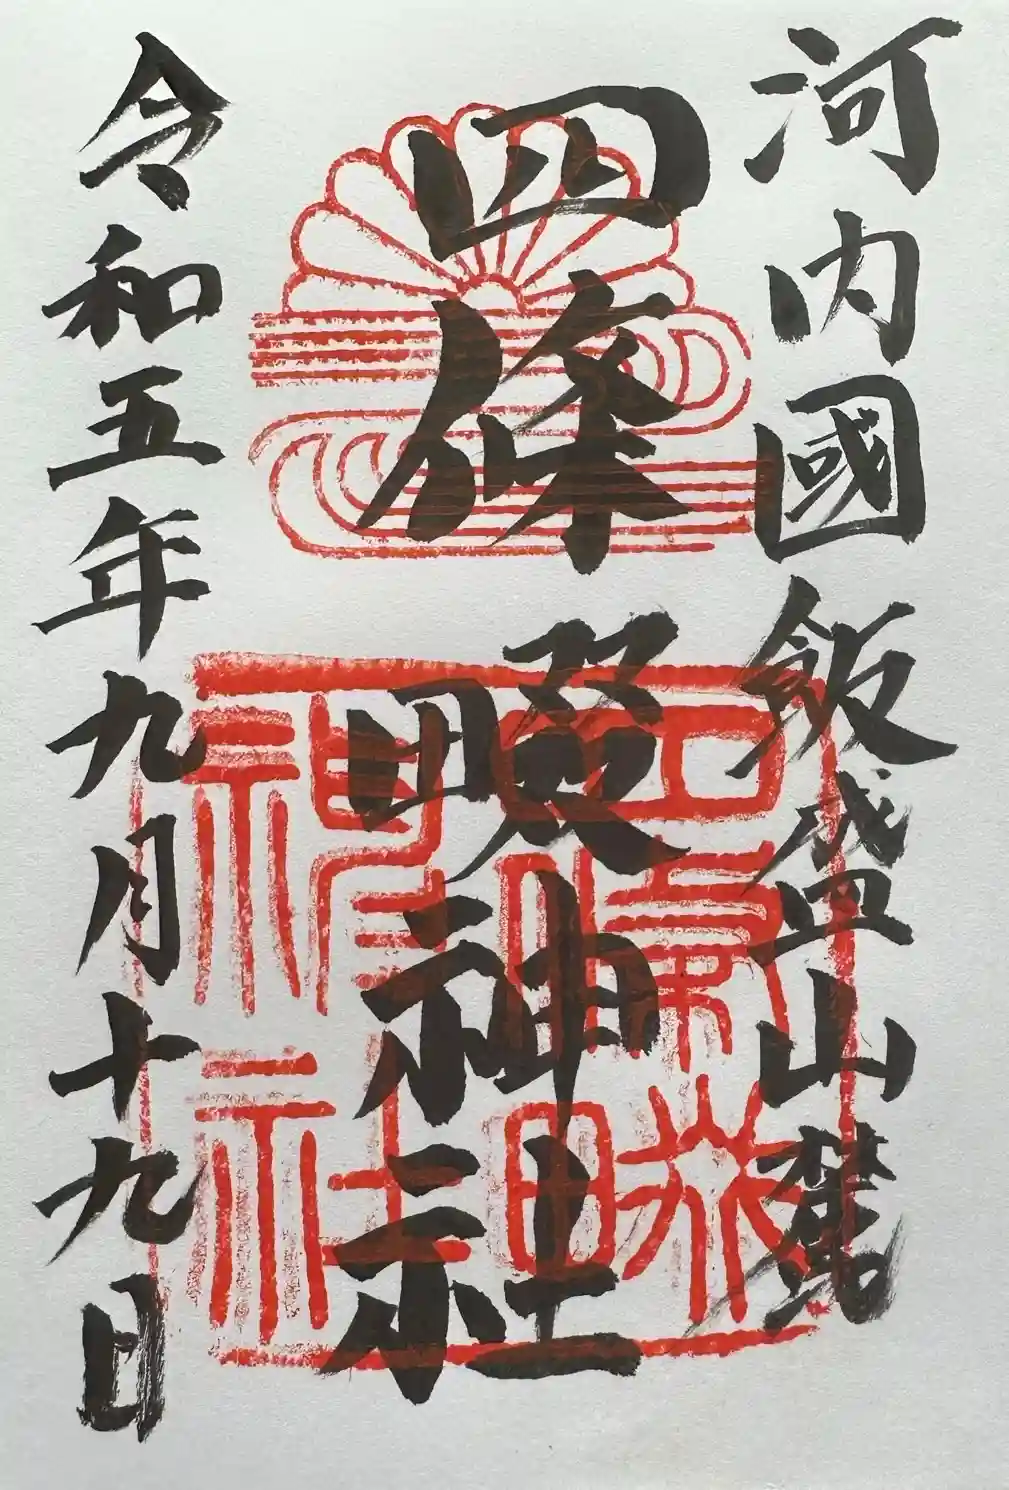 河内國飯盛山麓
四條畷神社
令和五年九月十九日
四條畷神社